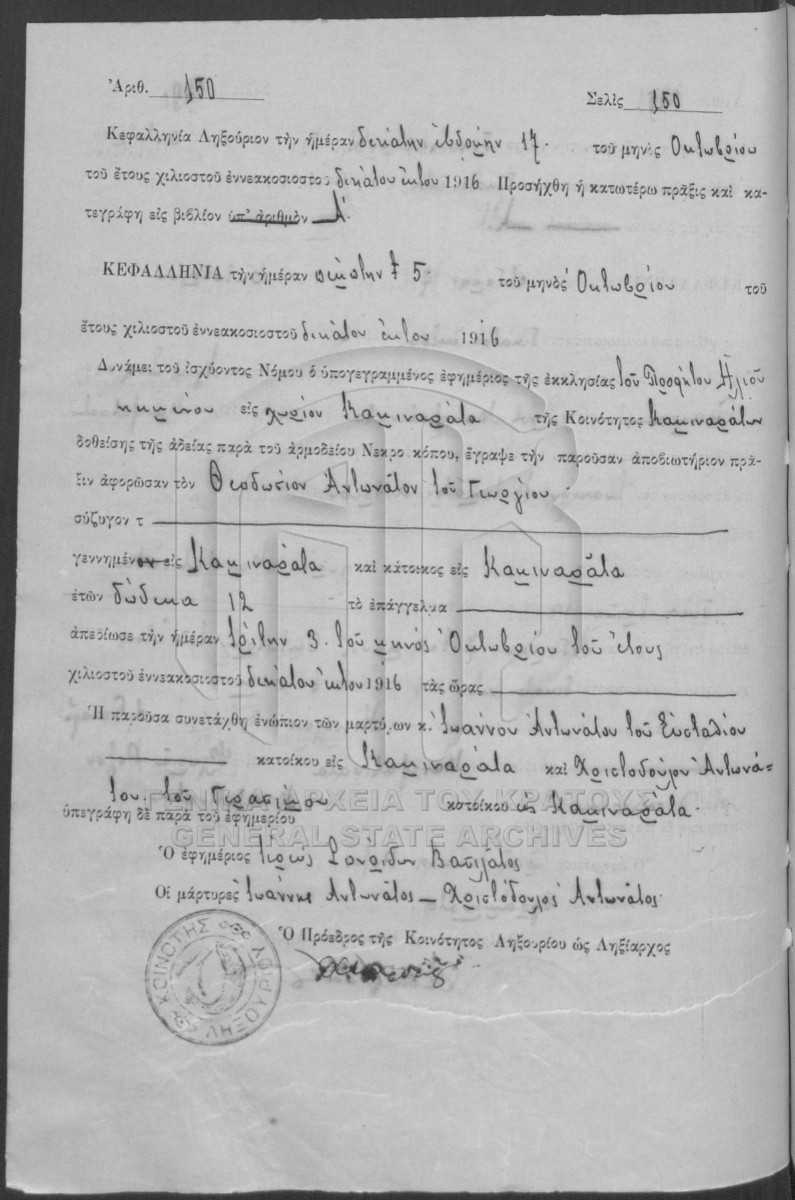 Ἀριθ. 150 Σελὶς 150
Κεφαλληνία Ληξούριον τὴν ἡμέραν δεκάτην ἑβδόμην 17. τοῦ μηνὸς Ὀκτωβρίου
τοῦ ἔτους χιλιοστοῦ ἐννεακοσιοστοῦ δεκάτου ἕκτου 1916 Προσήχθη ἡ κατωτέρω πρᾶξις καὶ κα-
τεγράφη εἰς βιβλίον ὑπ' ἀριθμὸν Α΄.
ΚΕΦΑΛΛΗΝΙΑ τὴν ἡμέραν πέμπτην 5. τοῦ μηνὸς Ὀκτωβρίου τοῦ
ἔτους χιλιοστοῦ ἐννεακοσιοστοῦ δεκάτου ἕκτου 1916
Δυνάμει τοῦ ἰσχύοντος Νόμου ὁ ὑπογεγραμμένος ἐφημέριος τῆς ἐκκλησίας τοῦ Προφήτου Ἠλιοῦ
κειμένου εἰς χωρίον Καμιναράτα τῆς Κοινότητος Καμιναράτων
δοθείσης τῆς ἀδείας παρὰ τοῦ ἁρμοδείου Νεκροκόπου, ἔγραψε τὴν παροῦσαν ἀποβιωτήριον πρᾶ-
ξιν ἀφορῶσαν τὸν Θεοδώσιον Ἀντωνάτον τοῦ Γεωργίου.
σύζυγον τ
γεννημένον εἰς Καμιναράτα καὶ κάτοικος εἰς Καμιναράτα
ἐτῶν δώδεκα 12 τὸ ἐπάγγελμα
ἀπεβίωσε τὴν ἡμέραν τρίτην 3. τοῦ μηνός Ὀκτωβρίου τοῦ ἔτους
χιλιοστοῦ ἐννεακοσιοστοῦ δεκάτου ἕκτου 1916 τὰς ὥρας
Ἡ παροῦσα συνετάχθη ἐνώπιον τῶν μαρτύρων κ. Ἰωάννου Ἀντωνάτου τοῦ Εὐσταθίου
κατοίκου εἰς Καμιναράτα καὶ Χριστοδούλου Ἀντωνά-
του τοῦ Γερασίμου κατοίκου εἰς Καμιναράτα.
ὑπεγράφη δὲ παρὰ τοῦ ἐφημερίου
ΓΕΝΙΚΑ ΑΡΧΕΙΑ ΤΟΥ ΚΡΑΤΟΥΣ
GENERAL STATE ARCHIVES
Ὁ ἐφημέριος Ἱερεύς Σπυρίδων Βασιλάτος
Οἱ μάρτυρες Ἰωάννης Ἀντωνάτος – Χριστόδουλος Ἀντωνάτος
Ὁ Πρόεδρος τῆς Κοινότητος Ληξουρίου ὡς Ληξίαρχος
ΚΟΙΝΟΤΗΣ ΛΗΞΟΥΡΙΟΥ